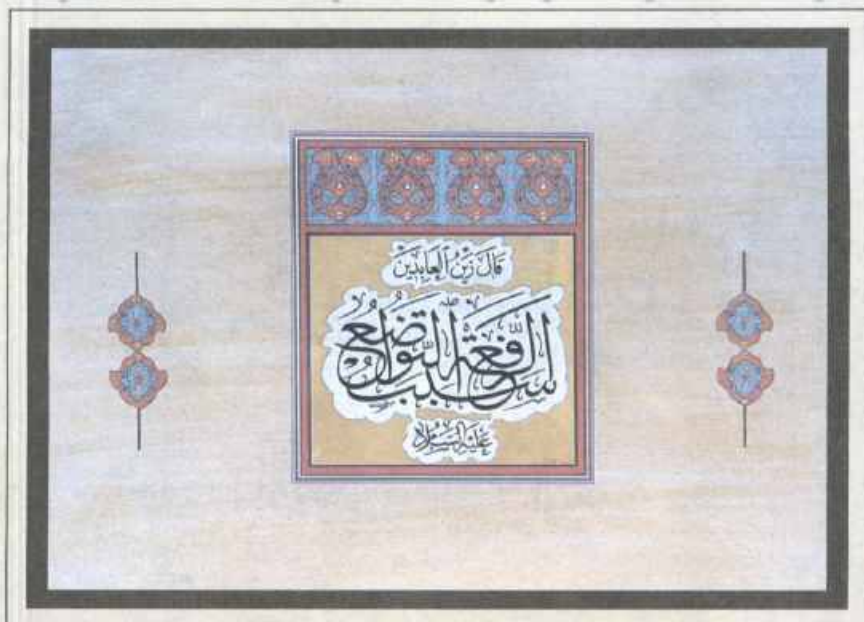 قَالَ زَيْنُ ٱلْعَابِدِينَ
سبب الرفعة التواضع
عَلَيْهِ السَّلَامُ